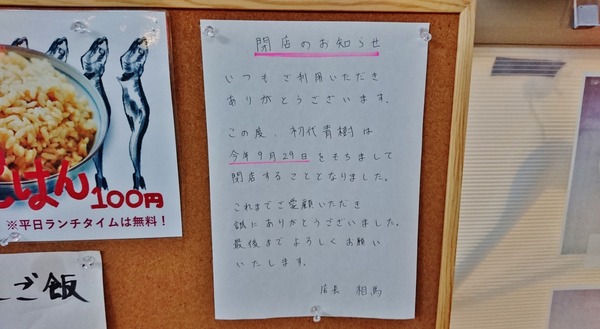 閉店のお知らせ
いつもご利用いただき
ありがとうございます.
この度、初代青樹は
今年9月29日をもちまして
閉店することとなりました。
これまでご愛顧いただき
誠にありがとうございました。
最後までよろしくお願い
いたします。
店長 相馬
ごはん100円
※平日ランチタイムは無料！
ご飯